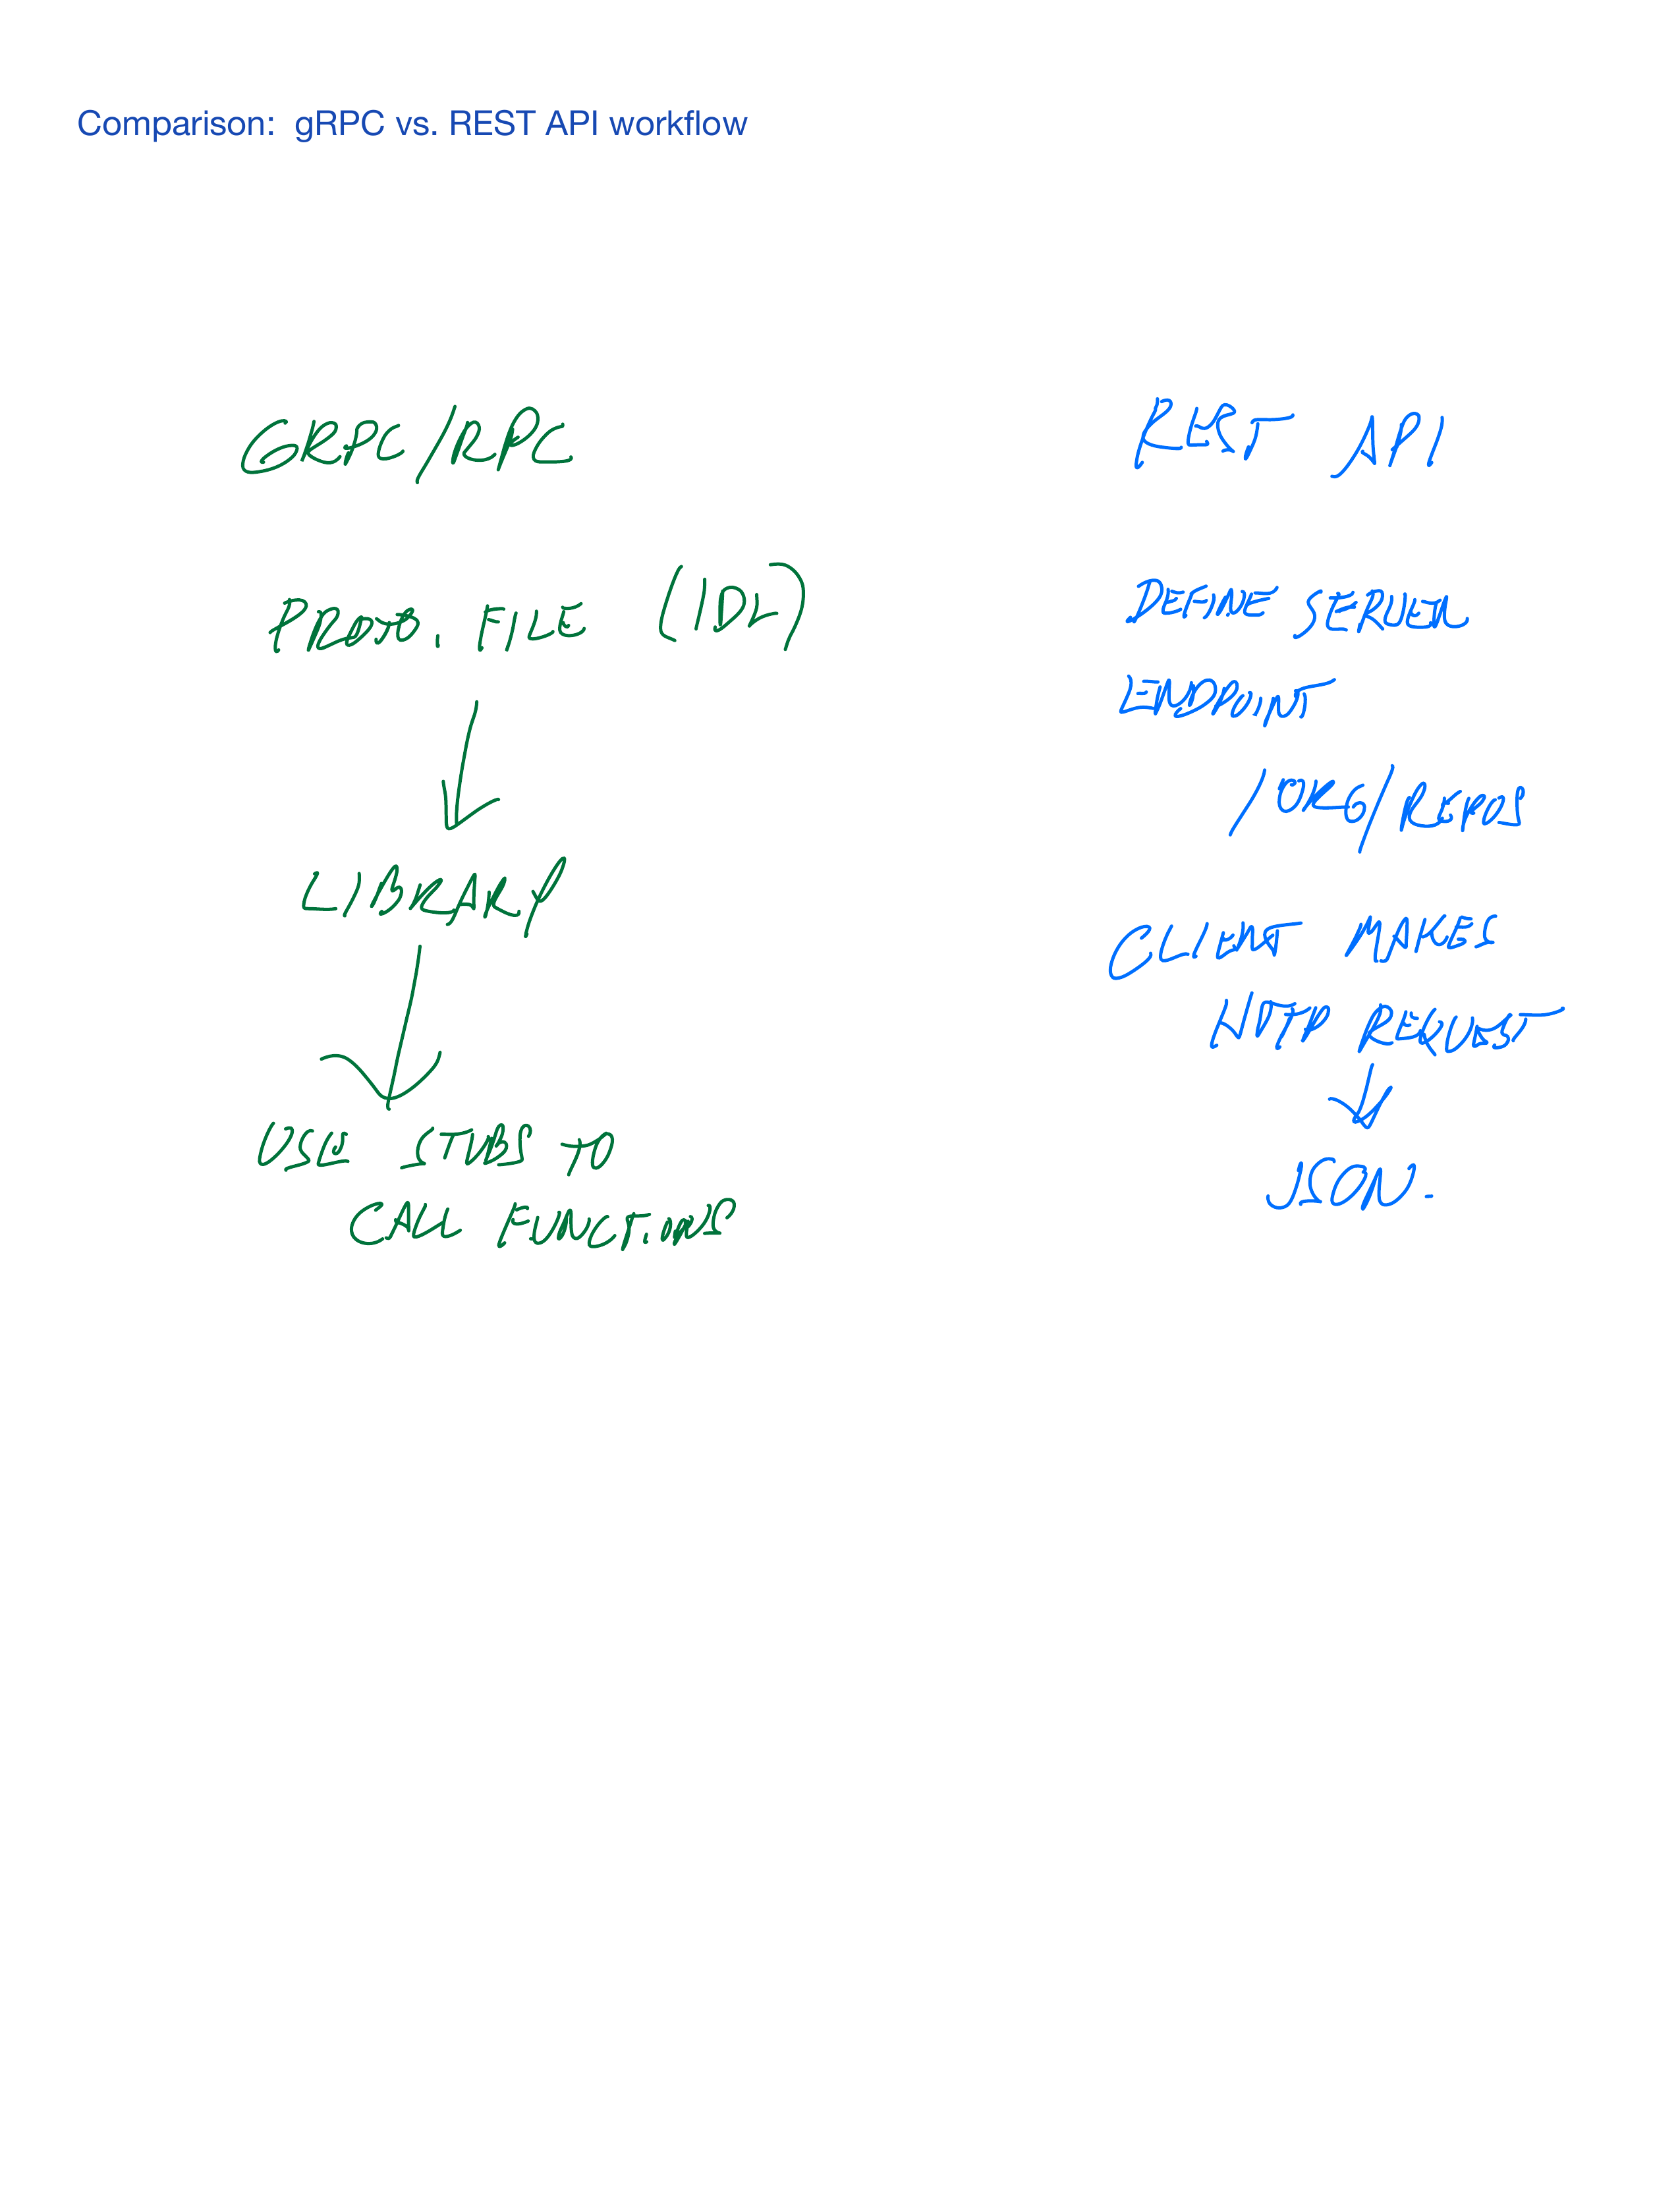 Comparison: gRPC vs. REST API workflow
GRPC/RPC
PROTO. FILE (IDL)
LIBRARY
USE STUBS TO
CALL FUNCTIONS
REST API
DEFINE SERVER
ENDPOINT
/ORG/REPOS
CLIENT MAKES
HTTP REQUEST
JSON.